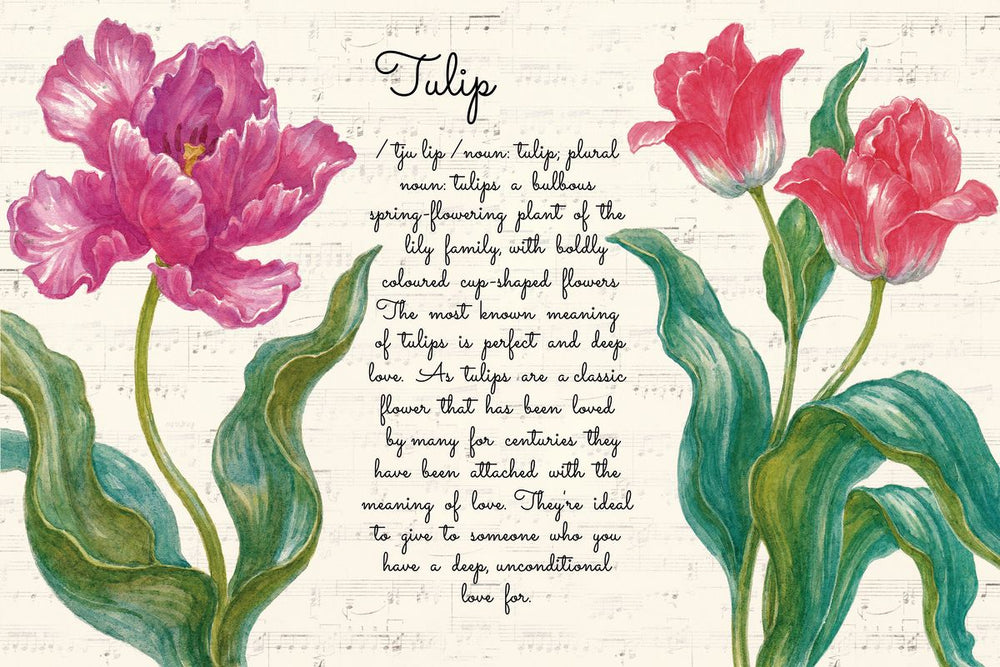 Tulip
/tju lip/noun: tulip; plural
noun: tulips a bulbous
spring-flowering plant of the
lily family, with boldly
coloured cup-shaped flowers
The most known meaning
of tulips is perfect and deep
love. As tulips are a classic
flower that has been loved
by many for centuries they
have been attached with the
meaning of love. They're ideal
to give to someone who you
have a deep, unconditional
love for.